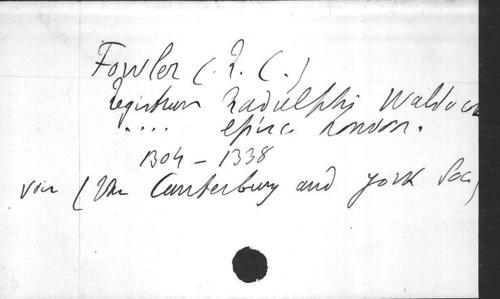 Fowler (R. C.)
Registrum Radulphi Baldock
..... episc. London.
1304 - 1338
voir (The Canterbury and York Soc)